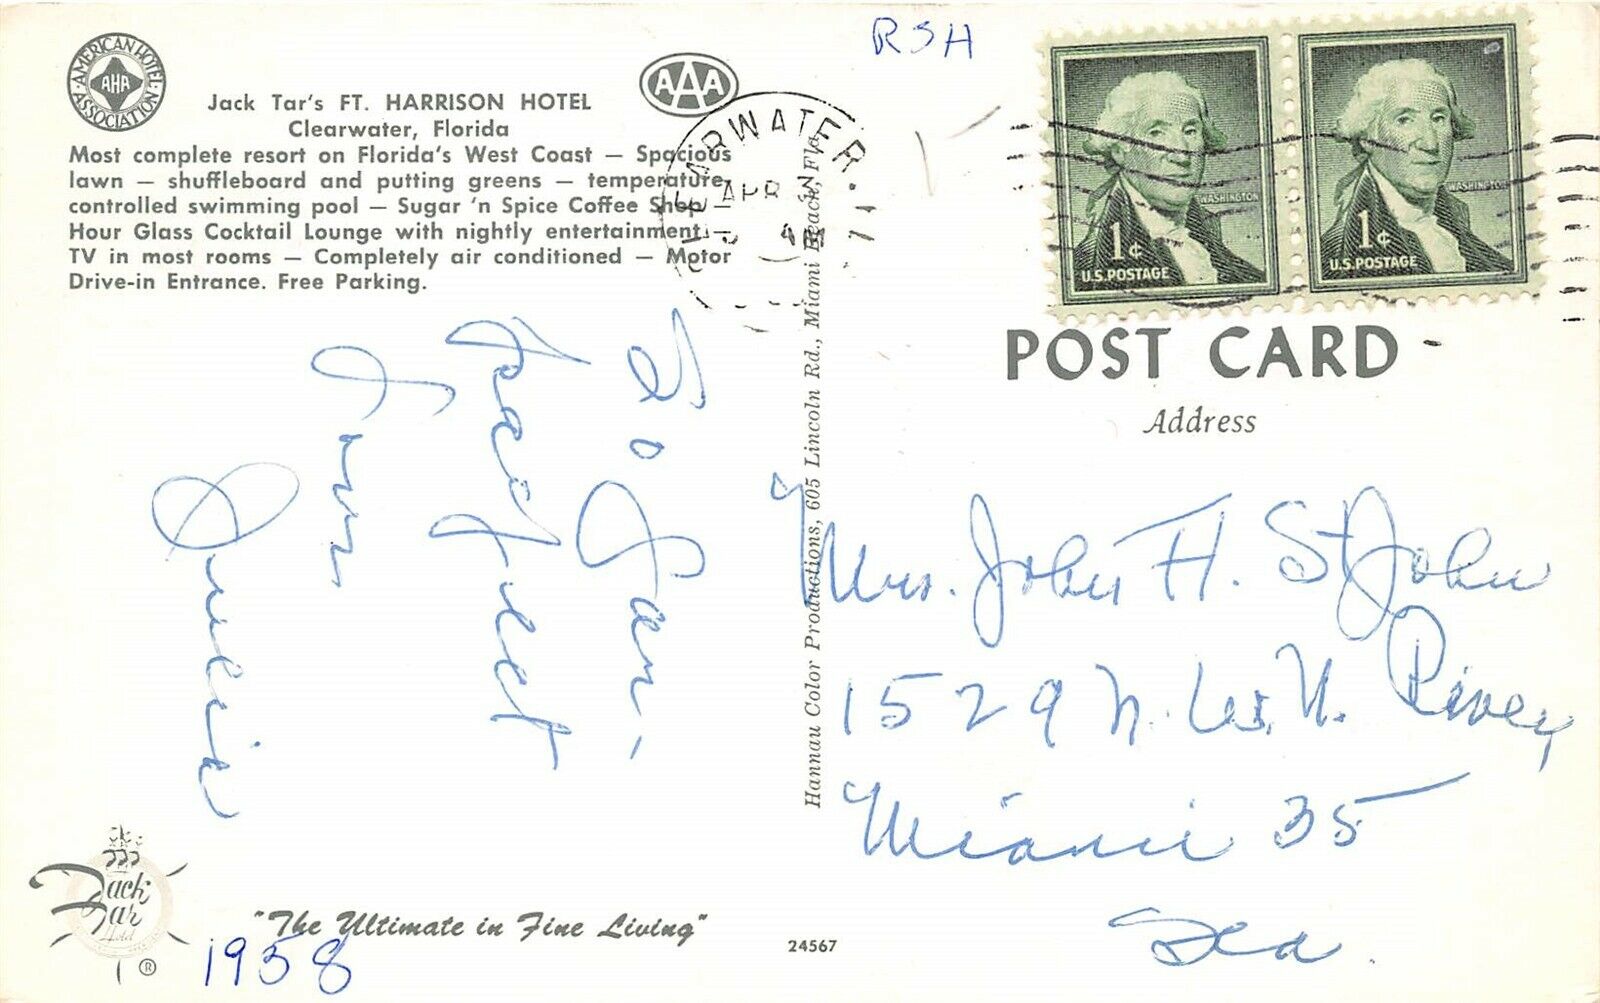 AMERICAN HOTEL ASSOCIATION
AHA
AAA
Jack Tar's FT. HARRISON HOTEL
Clearwater, Florida
Most complete resort on Florida's West Coast — Spacious
lawn — shuffleboard and putting greens — temperature-
controlled swimming pool — Sugar 'n Spice Coffee Shop —
Hour Glass Cocktail Lounge with nightly entertainment —
TV in most rooms — Completely air conditioned — Motor
Drive-in Entrance. Free Parking.
So Far,
perfect
fun
Julie
Jack
Tar
Hotel
®
"The Ultimate in Fine Living"
1958
24567
Hannau Color Productions, 605 Lincoln Rd., Miami Beach, Fla.
CLEARWATER.
APR
RSH
1¢
U.S. POSTAGE
WASHINGTON
1¢
U.S. POSTAGE
WASHINGTON
POST CARD
Address
Mrs. John H. St John
1529 N. W. N. River
Miami 35
Fla.